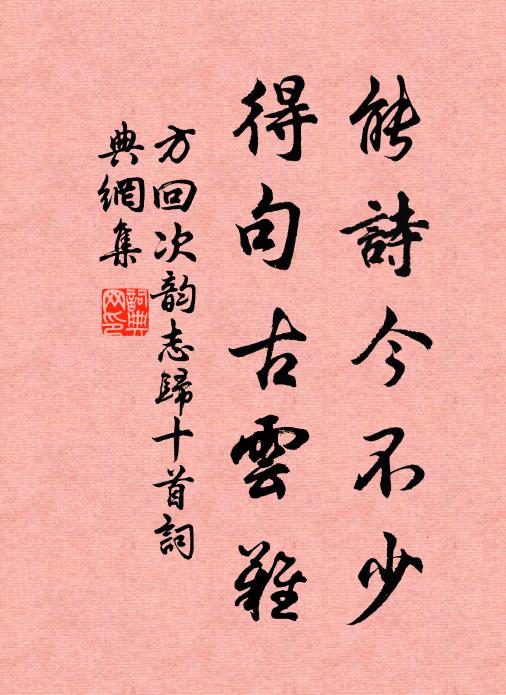 能詩今不少
得句古雲難
方回次韵志歸十首詞
典網集
詞典網印